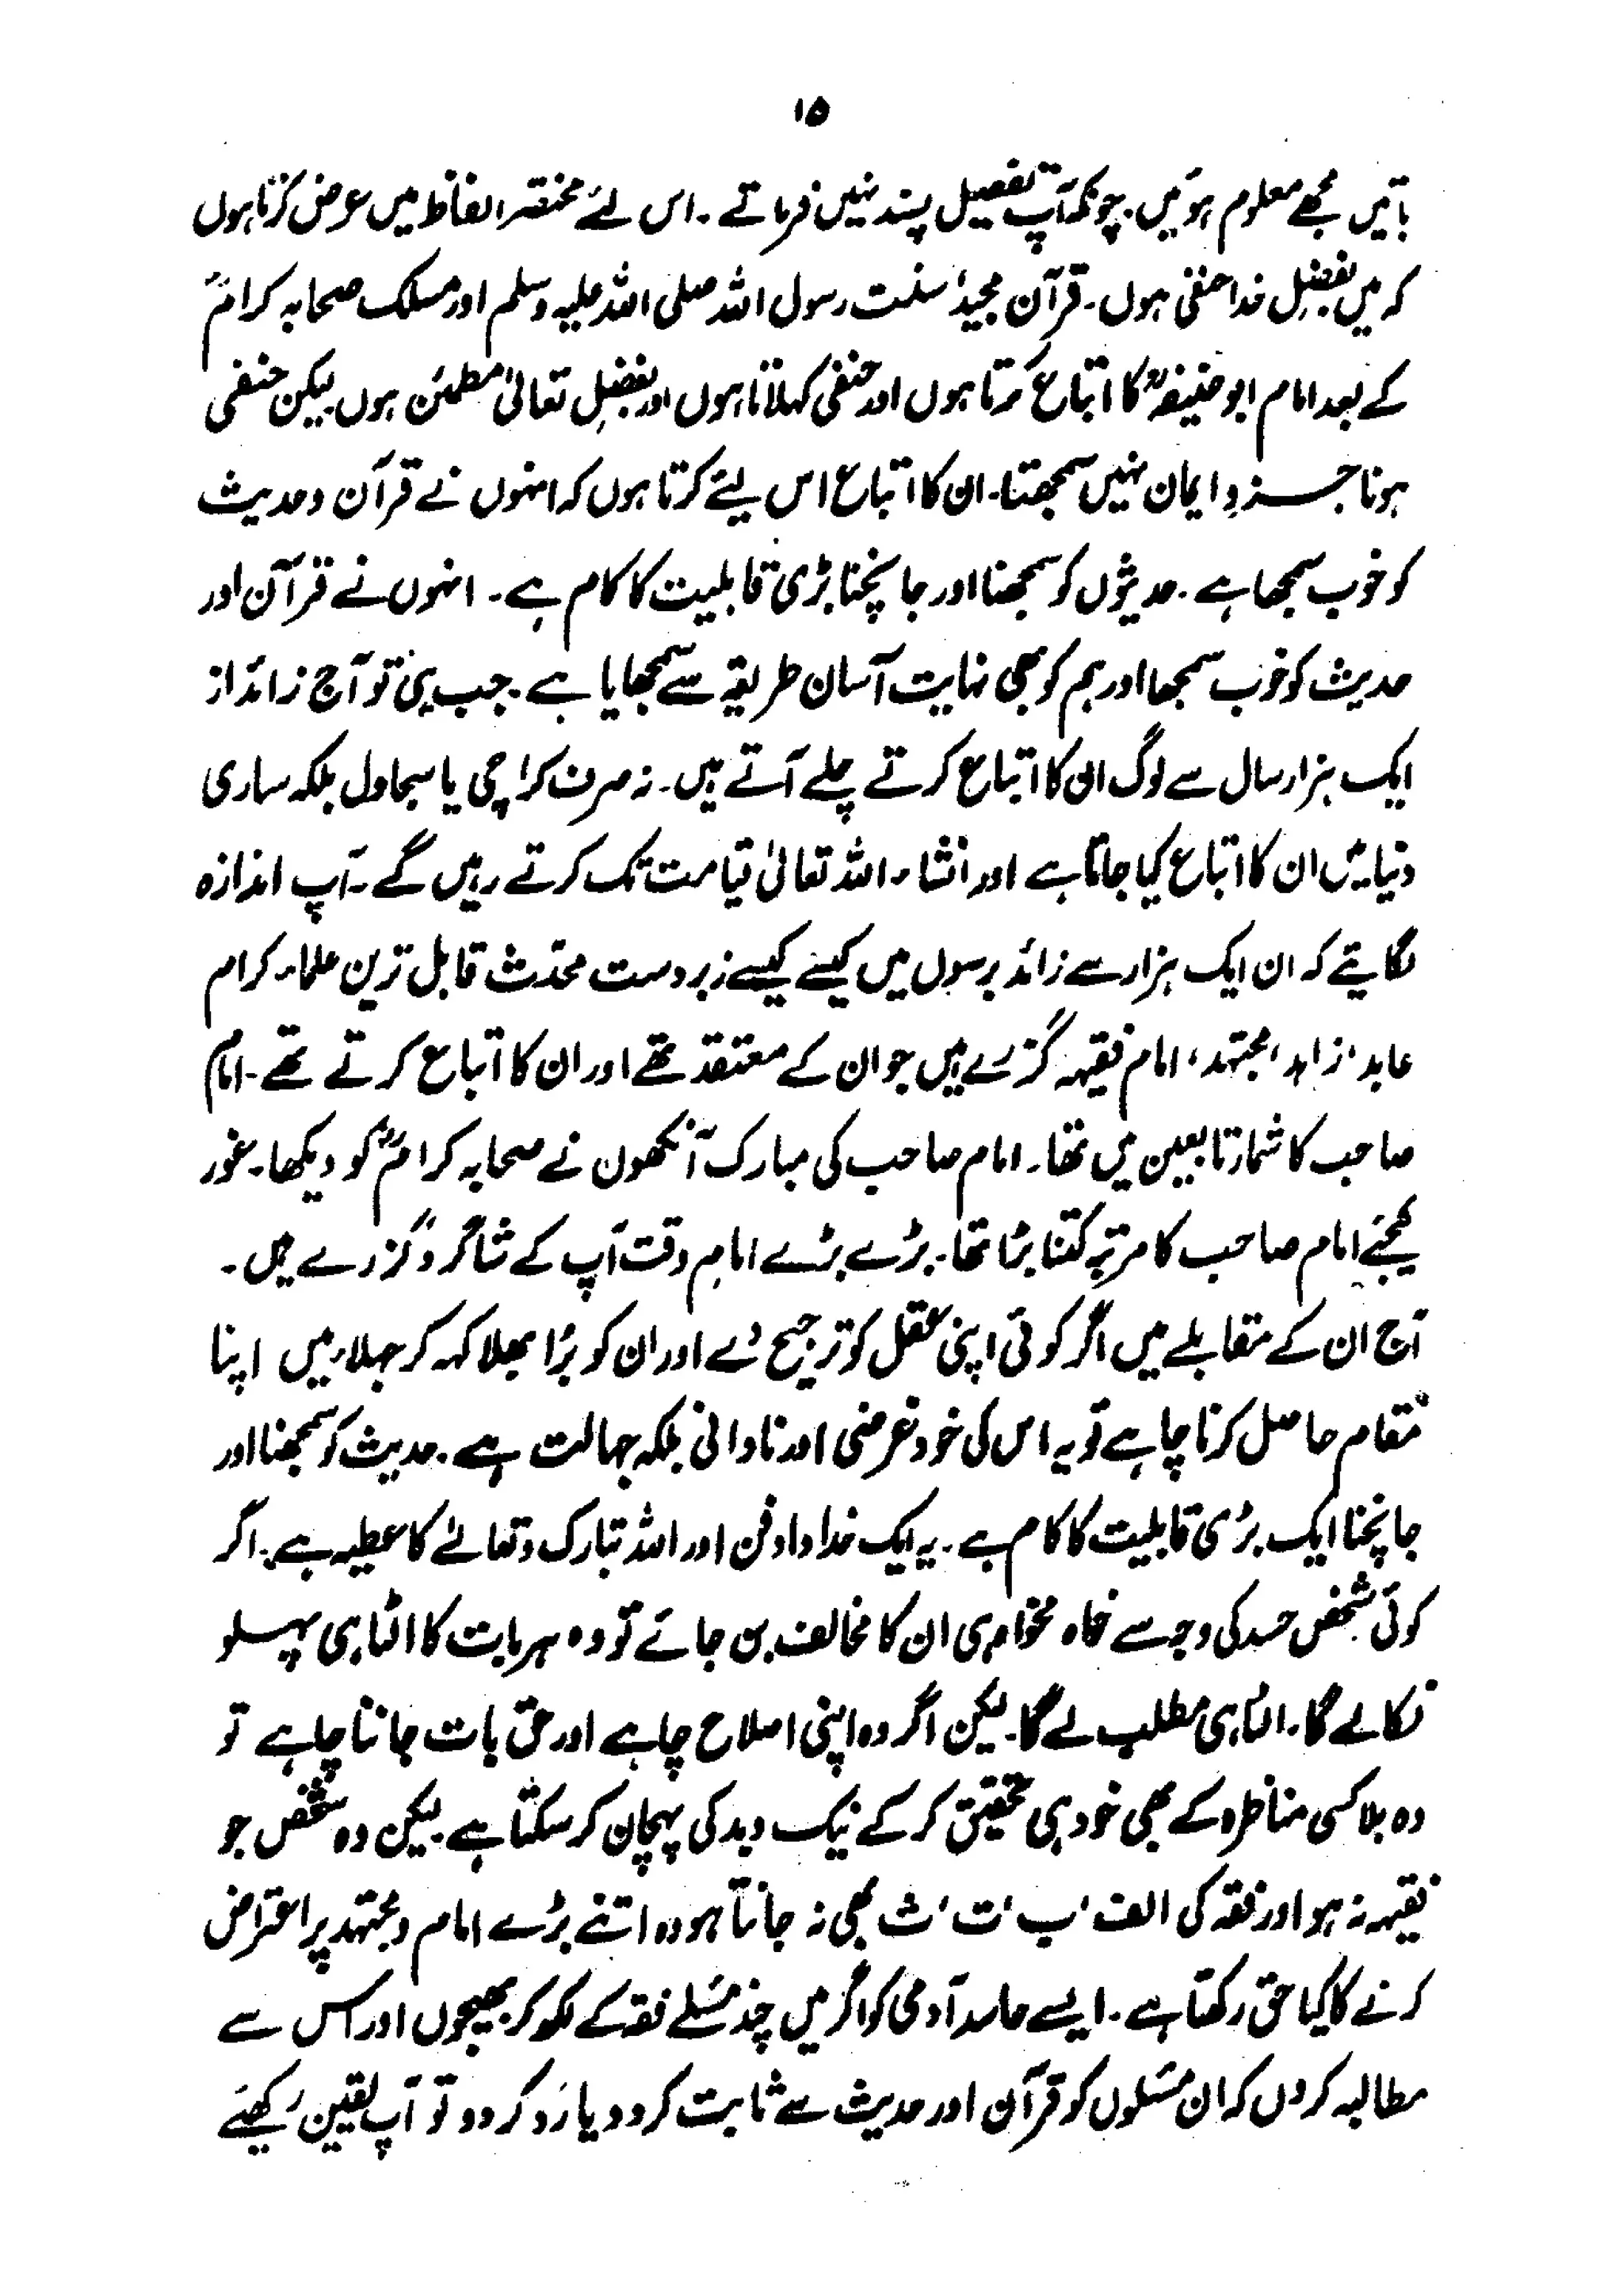 ۱۵
باتیں مجھے معلوم ہوئیں۔ چونکہ آپ تفصیل پسند نہیں فرماتے۔ اس لئے مختصر الفاظ میں عرض کرتا ہوں
کہ میں بفضلِ خدا حنفی ہوں۔ قرآن مجید، سنت رسول اللہ صلی اللہ علیہ وسلم اور مسلک صحابہ کرامؓ
کے بعد امام ابو حنیفہؒ کا اتباع کرتا ہوں اور حنفی کہلاتا ہوں اور بفضلِ تعالیٰ مطمئن ہوں لیکن حنفی
ہونا جزوِ ایمان نہیں سمجھتا۔ ان کا اتباع اس لیئے کرتا ہوں کہ انہوں نے قرآن و حدیث
کو خوب سمجھا ہے۔ حدیثوں کو سمجھنا اور جانچنا بڑی قابلیت کا کام ہے۔ انہوں نے قرآن اور
حدیث کو خوب سمجھا اور ہم کو بھی نہایت آسان طریقہ سے سمجھایا ہے۔ جب ہی تو آج زائد از
ایک ہزار سال سے لوگ ان کا اتباع کرتے چلے آتے ہیں۔ نہ صرف کراچی یا سجاول بلکہ ساری
دنیا میں ان کا اتباع کیا جاتا ہے اور انشاء اللہ تعالیٰ قیامت تک کرتے رہیں گے۔ آپ اندازہ
لگایئے کہ ان ایک ہزار سے زائد برسوں میں کیسے کیسے زبردست محدّث قابل ترین علماء کرام
عابد، زاہد، مجتہد، امام فقیہہ گزرے ہیں جو ان کے معتقد تھے اور ان کا اتباع کرتے تھے۔ امام
صاحب کا شمار تابعین میں تھا۔ امام صاحب کی مبارک آنکھوں نے صحابہ کرامؓ کو دیکھا۔ غور
کیجئے امام صاحب کا مرتبہ کتنا بڑا تھا۔ بڑے بڑے امامِ وقت آپ کے شاگرد گزرے ہیں۔
آج ان کے مقابلے میں اگر کوئی اپنی عقل کو ترجیح دے اور ان کو بُرا بھلا کہہ کر جہلاء میں اپنا
مقام حاصل کرنا چاہے تو یہ اس کی خود غرضی اور نادانی بلکہ جہالت ہے۔ حدیث کو سمجھنا اور
جانچنا ایک بڑی قابلیت کا کام ہے۔ یہ ایک خداداد فن اور اللہ تبارک و تعالےٰ کا عطیہ ہے۔ اگر
کوئی شخص حسد کی وجہ سے خواہ مخواہ ہی ان کا مخالف بن جائے تو وہ ہر بات کا الٹا ہی پہلو
نکالے گا۔ الٹا ہی مطلب لے گا۔ لیکن اگر وہ اپنی اصلاح چاہے اور حق بات جاننا چاہے تو
وہ بلا کسی مناظرہ کے بھی خود ہی تحقیق کر کے نیک و بد کی پہچان کر سکتا ہے۔ لیکن وہ شخص جو
فقیہہ نہ ہو اور فقہ کی الف، ب، ت، ث بھی نہ جانتا ہو وہ اتنے بڑے امام و مجتہد پر اعتراض
کرنے کا کیا حق رکھتا ہے۔ ایسے حاسد آدمی کو اگر میں چند مسئلے فقہ کے لکھ کر بھیجوں اور اس سے
مطالبہ کروں کہ ان مسئلوں کو قرآن اور حدیث سے ثابت کر دو یا رَد کر دو تو آپ یقین رکھیئے